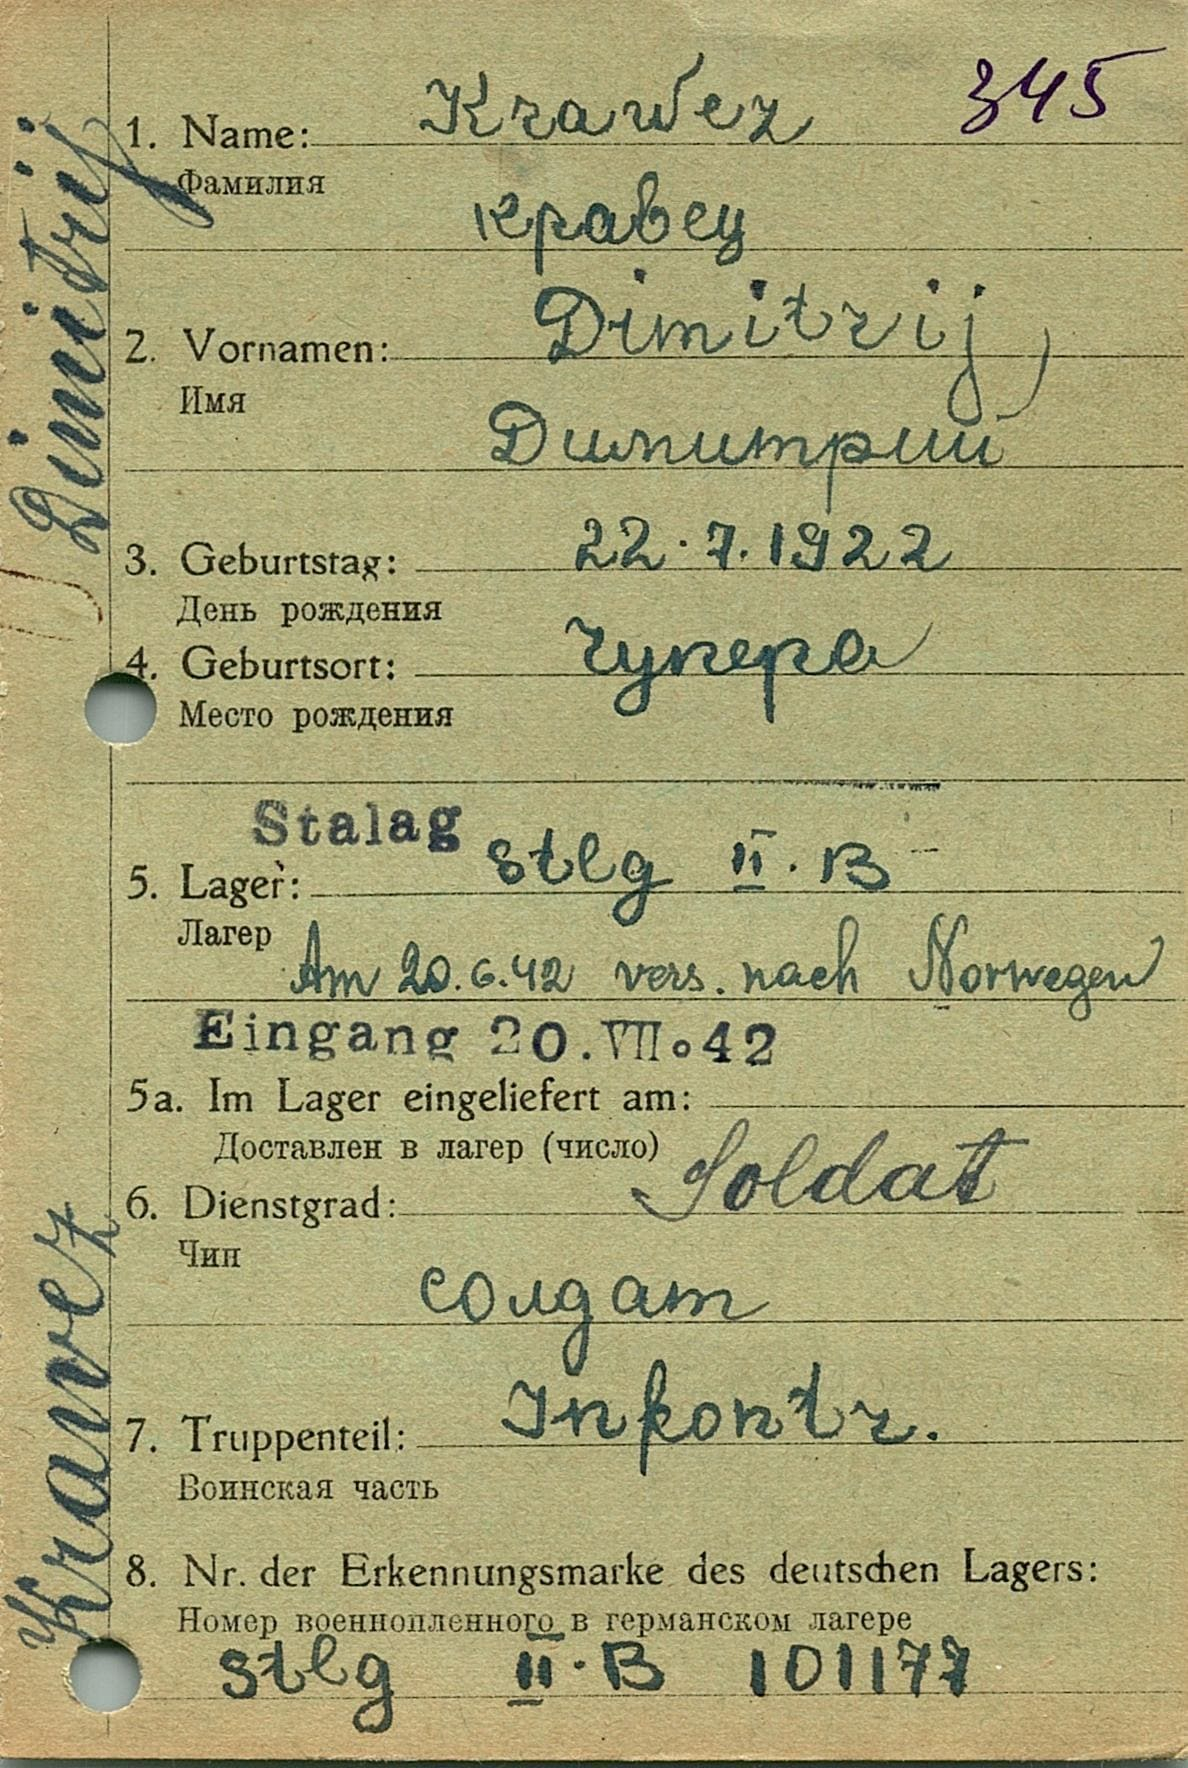 345
1. Name: Krawez
Фамилия
кравец
2. Vornamen: Dimitrij
Имя
Димитрии
3. Geburtstag: 22.7.1922
День рождения
4. Geburtsort: чупера
Место рождения
Stalag
5. Lager: Stlg II.B
Лагер
Am 20.6.42 vers. nach Norwegen
Eingang 20.VII.42
5a. Im Lager eingeliefert am:
Доставлен в лагер (число)
6. Dienstgrad: Soldat
Чин
солдат
7. Truppenteil:
Воинская часть
8. Nr. der Erkennungsmarke des deutschen Lagers:
Номер военнопленного в германском лагере
Stlg II.B 101177
Krawez Dimitrij